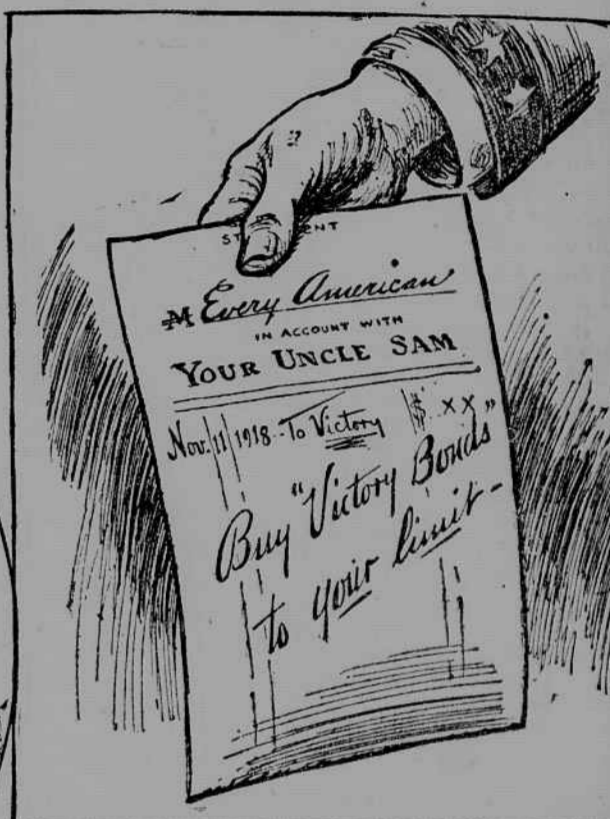 M Every American
IN ACCOUNT WITH
YOUR UNCLE SAM
Nov. 11 1918 To Victory $ XX
Buy "Victory Bonds"
to your limit -